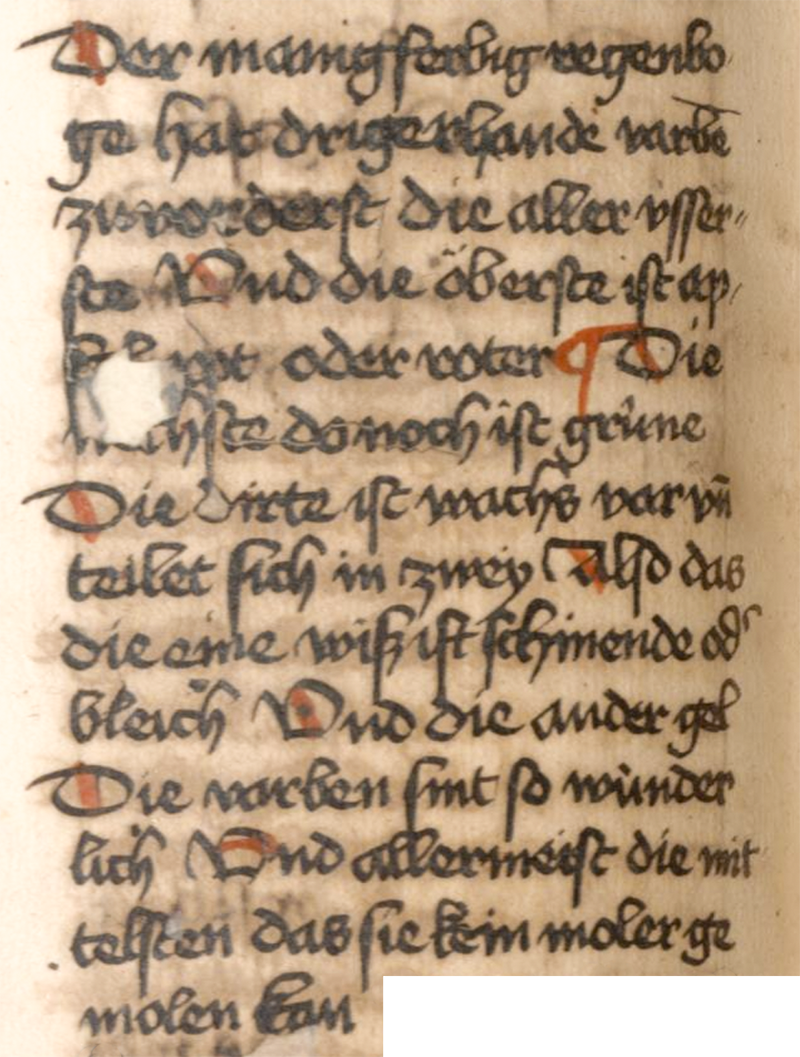 Der manigferbig regenbo
ge hat drigerhande varbē
zuvorderst die aller vsser〃
ste Vnd die öberste ist ap〃
oder roter ¶ Die
chste donoch ist grüne
Die dirte ist wachs var vn̄
teilet sich in zwey Also das
die eine wiß ist schinende od᾽
bleich Vnd die ander gel
Die varben sint so wunder
lich Vnd allermeist die mit
telsten das sie kein moler ge
molen kan